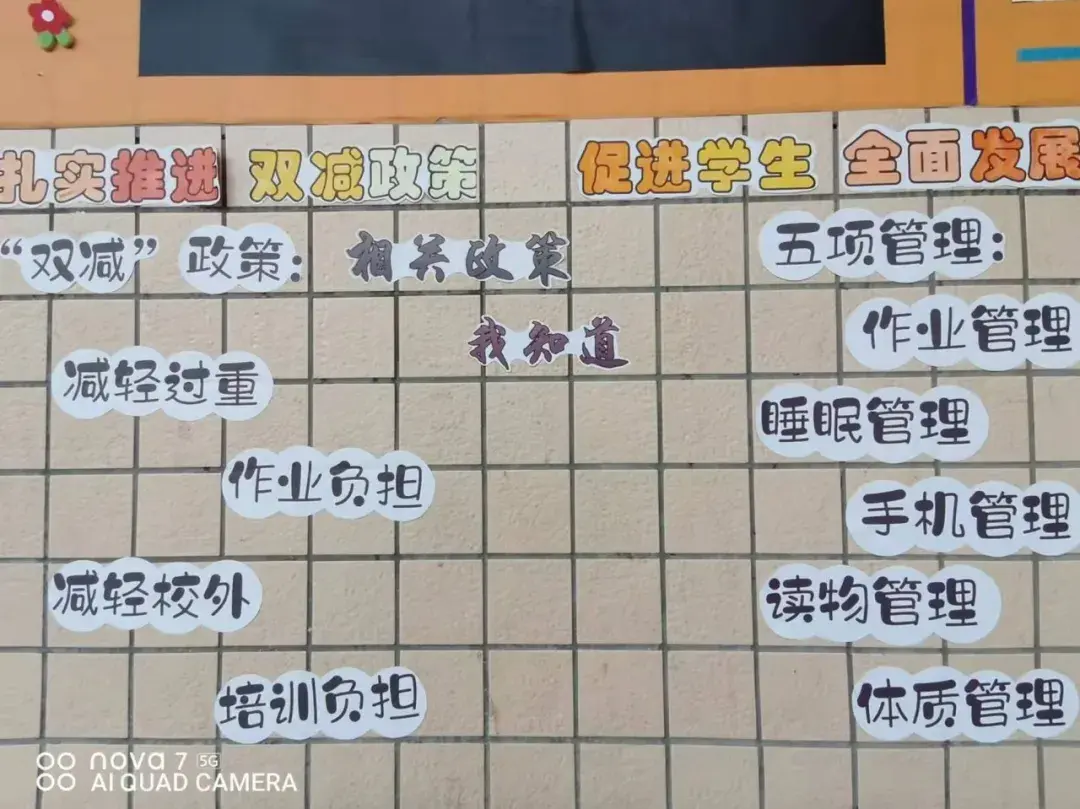 扎实推进 双减政策 促进学生 全面发展
“双减”政策：
相关政策
我知道
减轻过重
作业负担
减轻校外
培训负担
五项管理：
作业管理
睡眠管理
手机管理
读物管理
体质管理
nova 7 5G
AI QUAD CAMERA